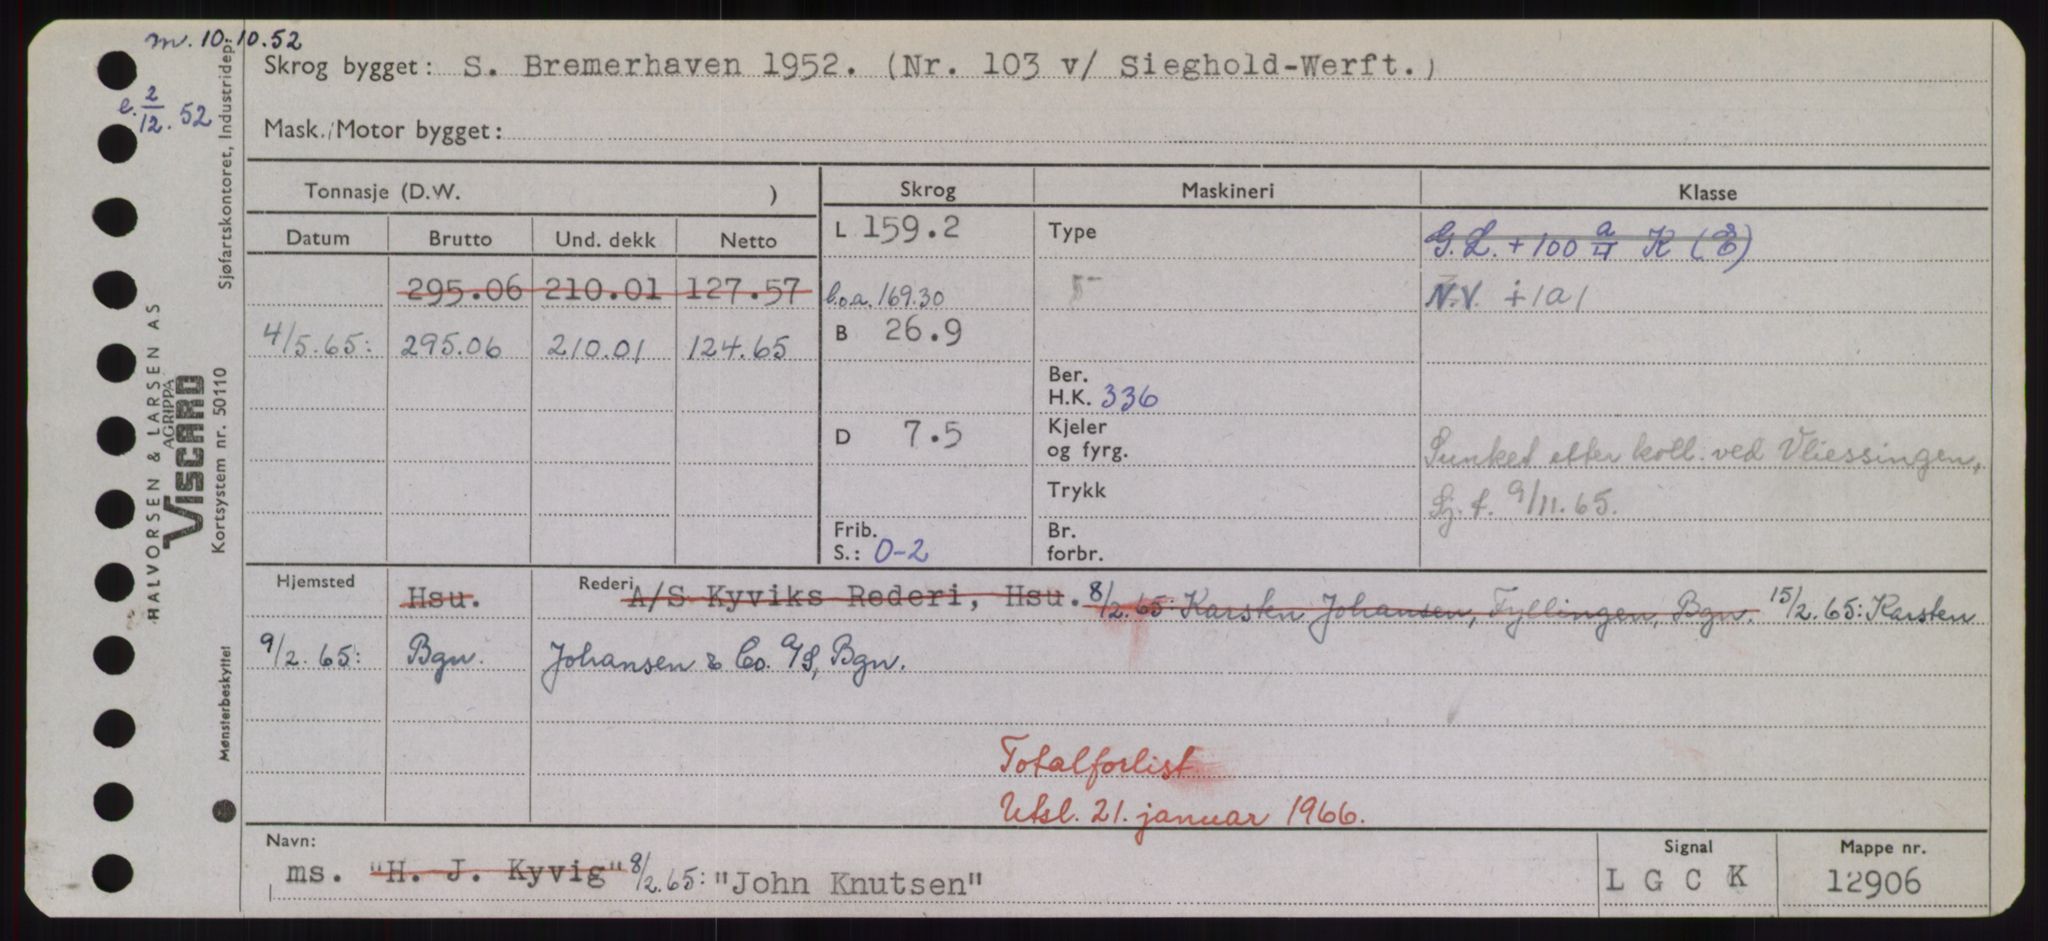 m. 10.10.52
e. 2/12. 52
Skrog bygget: S. Bremerhaven 1952. (Nr. 103 v/ Sieghold-Werft.)
Mask./Motor bygget:
Tonnasje (D.W. )
Skrog
Maskineri
Klasse
Datum
Brutto
Und. dekk
Netto
L 159.2
Type
G.L. + 100 a/4 K (E)
295.06 210.01 127.57
l.o.a. 169.30
N.V. +1A1
4/5.65: 295.06 210.01 124.65
B 26.9
Ber.
H.K. 336
D 7.5
Kjeler
og fyrg.
Sunket etter koll. ved Vliessingen,
Trykk
Sj. f. 9/11.65.
Frib.
S.: 0-2
Br.
forbr.
Hjemsted
Hsu.
Rederi
A/S Kyviks Rederi, Hsu. 8/2.65: Karsten Johansen, Fyllingen, Bgn. 15/2.65: Karsten
9/2.65: Bgn. Johansen & Co. A/S, Bgn.
Totalforlist
Utsl. 21. januar 1966.
Navn:
ms. "H. J. Kyvig" 8/2.65: "John Knutsen"
Signal
L G C K
Mappe nr.
12906
HALVORSEN & LARSEN AS
AGRIPPA
VISCARD
Kortsystem nr. 50110
Sjøfartskontoret, Industridep.
Mønsterbeskyttet